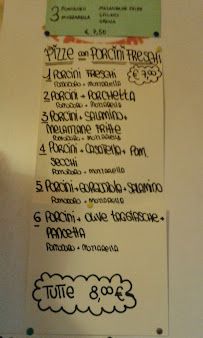 3 POMODORO
MOZZARELLA
MELANZANE FRITTE
€ 7,50
PIZZE CON PORCINI FRESCHI
1 PORCINI FRESCHI
POMODORO + MOZZARELLA
2 PORCINI + PORCHETTA
POMODORO + MOZZARELLA
3 PORCINI + SALAMINO +
MELANZANE FRITTE
POMODORO + MOZZARELLA
4 PORCINI + CASATELLA + POM.
SECCHI
POMODORO + MOZZARELLA
5 PORCINI + GORGONZOLA + SALAMINO
POMODORO + MOZZARELLA
6 PORCINI + OLIVE TAGGIASCHE +
PANCETTA
POMODORO + MOZZARELLA
TUTTE 8,00 €